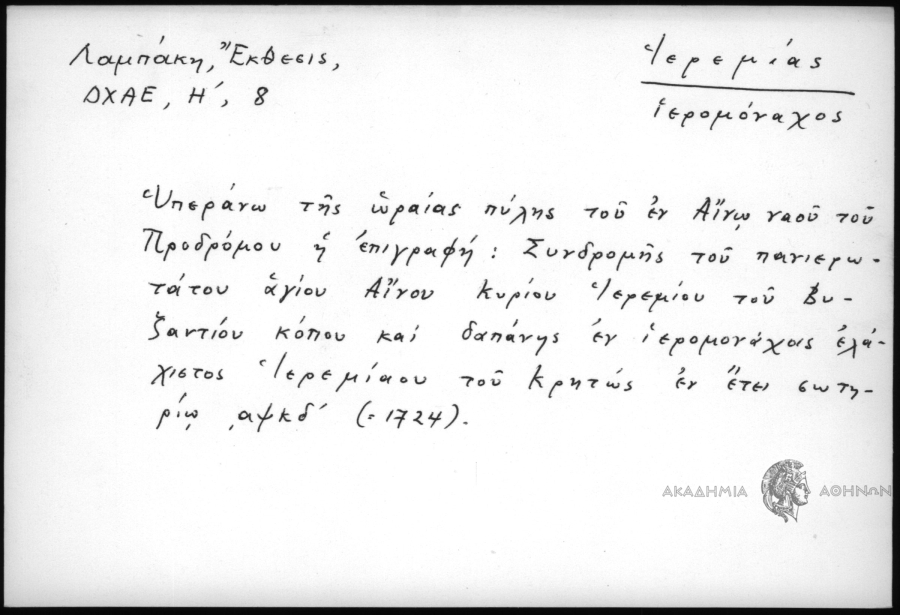 Λαμπάκη, Ἔκθεσις,
ΔΧΑΕ, Η΄, 8
Ἱερεμίας
ἱερομόναχος
Ὑπεράνω τῆς ὡραίας πύλης τοῦ ἐν Αἴνῳ ναοῦ τοῦ
Προδρόμου ἡ ἐπιγραφή: Συνδρομῆς τοῦ πανιερω-
τάτου ἁγίου Αἴνου κυρίου Ἱερεμίου τοῦ Βυ-
ζαντίου κόπου καί δαπάνης ἐν ἱερομονάχοις ἐλά-
χιστος Ἱερεμίαου τοῦ Κρητώς ἐν ἔτει σωτη-
ρίῳ ͵αψκδ΄ (=1724).
ΑΚΑΔΗΜΙΑ ΑΘΗΝΩΝ